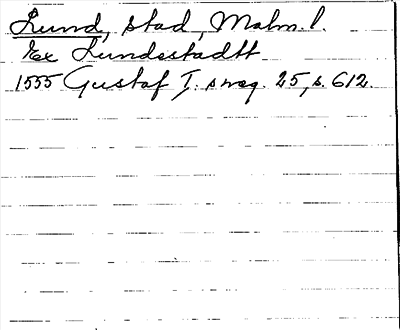 Lund, stad, Malm. l.
Ex Lundsstadtt
1555 Gustaf I:s reg. 25, s. 612.